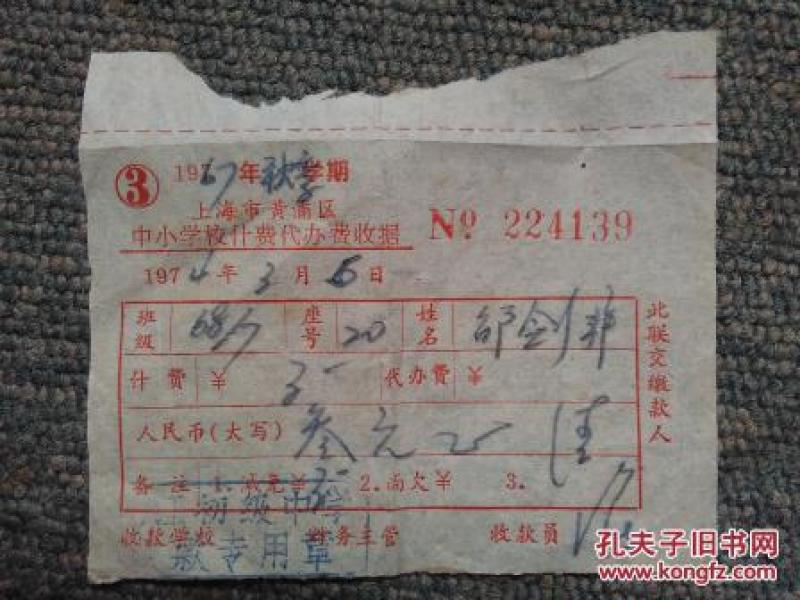 ③ 1967年秋季学期
上海市黄浦区
中小学校什费代办费收据 № 224139
1974年3月5日
班级 座号 20 姓名 邹剑
什费 ¥ 3 代办费 ¥
人民币(大写) 叁元
备注 1.减免¥ 2.尚欠¥ 3.
初级中学
收款学校 财务主管 收款员
款专用章
此联交缴款人
孔夫子旧书网
www.kongfz.com